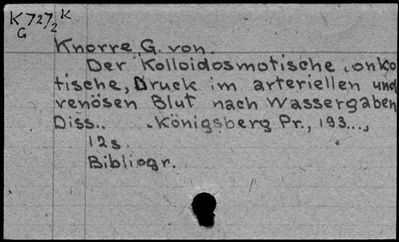 K727₂ K
G
Knorre G. von.
Der Kolloidosmotische, onko
tische, Druck im arteriellen und
venösen Blut nach Wassergaben
Diss.. Königsberg Pr., 193...,
12s.
Bibliogr.